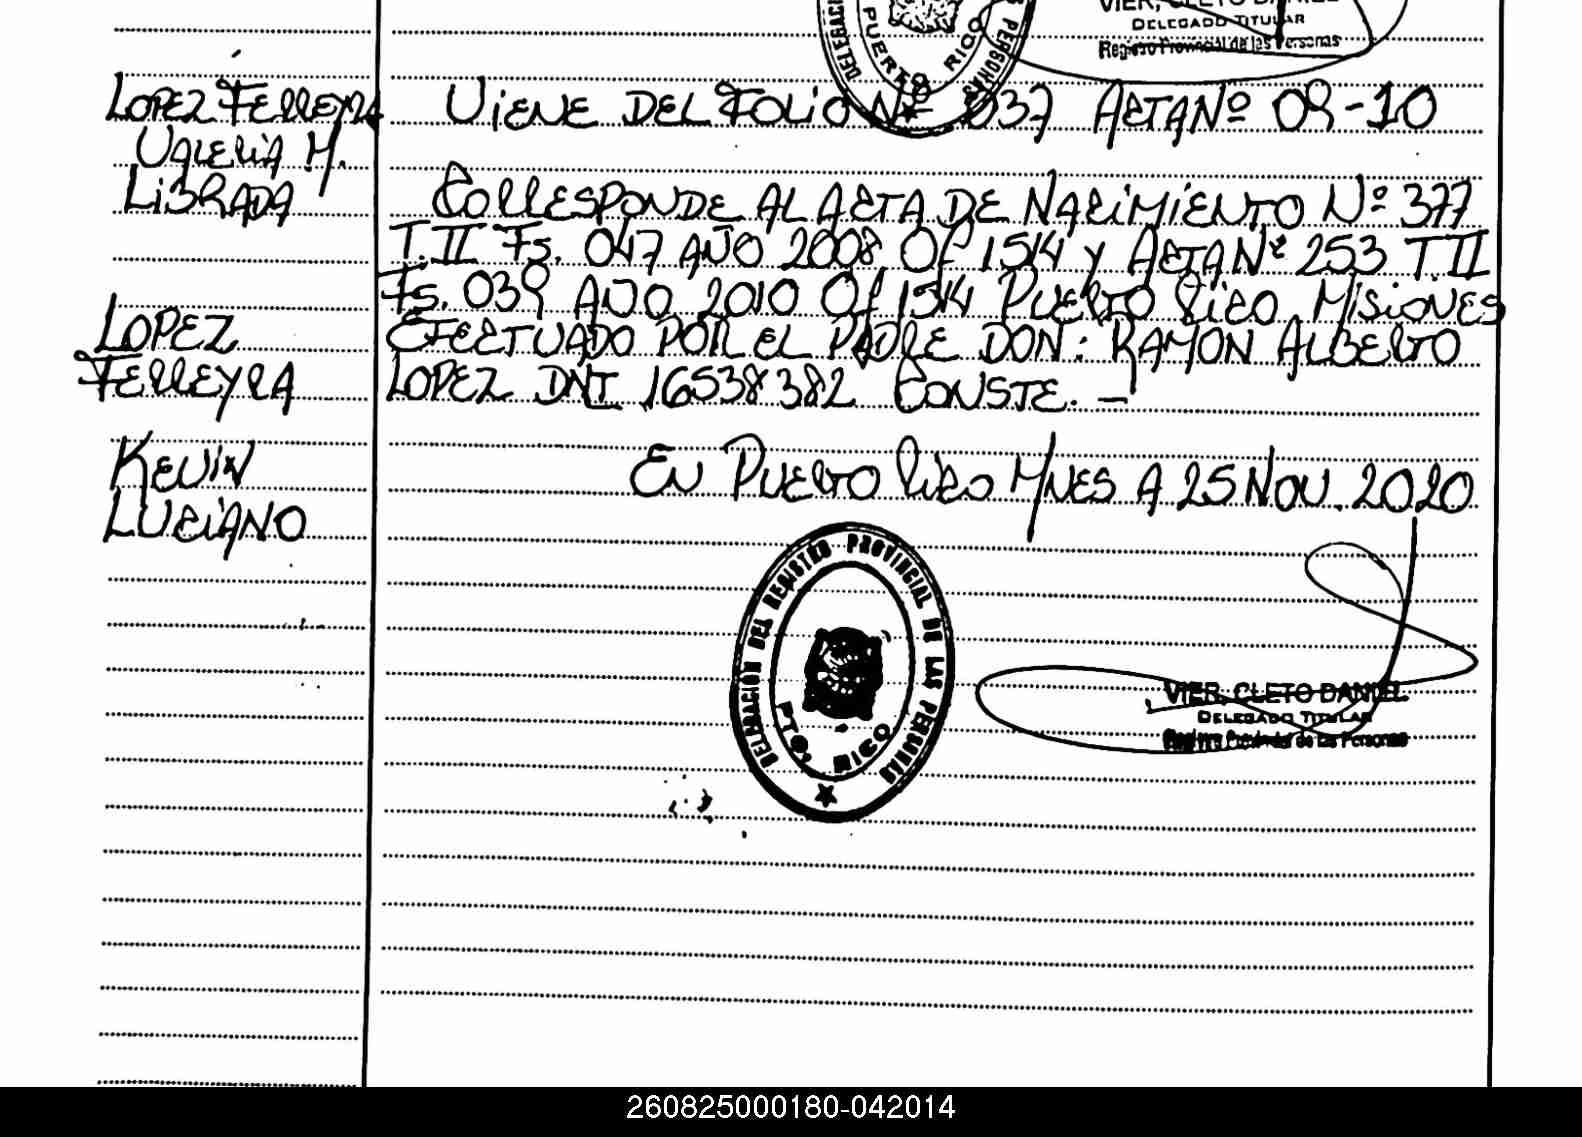 VIER, CLETO DANIEL
DELEGADO TITULAR
Registro Provincial de las Personas
PUERTO RICO
LOPEZ FERREYRA VIENE DEL FOLIO Nº 037 ACTA Nº 09-10
VALERIA M.
LIBRADA CORRESPONDE AL ACTA DE NACIMIENTO Nº 377
T.II Fs. 047 AÑO 2008 Of 1514 Y ACTA Nº 253 T.II
Fs. 039 AÑO 2010 Of 1514 PUERTO RICO MISIONES
LOPEZ EFECTUADO POR EL PADRE DON: RAMON ALBERTO
FERREYRA LOPEZ DNI 16538382 CONSTE. -
KEVIN EN PUERTO RICO MNES A 25 NOV. 2020
LUCIANO
DELEGACION DEL REGISTRO PROVINCIAL DE LAS PERSONAS
PTO. RICO
VIER, CLETO DANIEL
DELEGADO TITULAR
Registro Provincial de las Personas
260825000180-042014